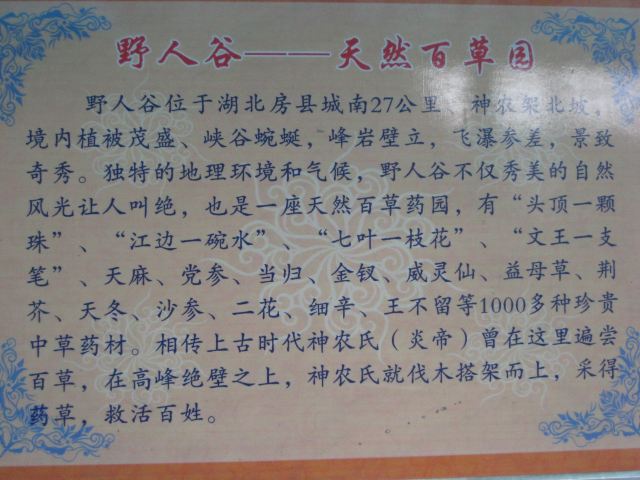 野人谷——天然百草园
野人谷位于湖北房县城南27公里、神农架北坡，
境内植被茂盛、峡谷蜿蜒，峰岩壁立，飞瀑参差，景致
奇秀。独特的地理环境和气候，野人谷不仅秀美的自然
风光让人叫绝，也是一座天然百草药园，有“头顶一颗
珠”、“江边一碗水”、“七叶一枝花”、“文王一支
笔”、天麻、党参、当归、金钗、威灵仙、益母草、荆
芥、天冬、沙参、二花、细辛、王不留等1000多种珍贵
中草药材。相传上古时代神农氏（炎帝）曾在这里遍尝
百草，在高峰绝壁之上，神农氏就伐木搭架而上，采得
药草，救活百姓。